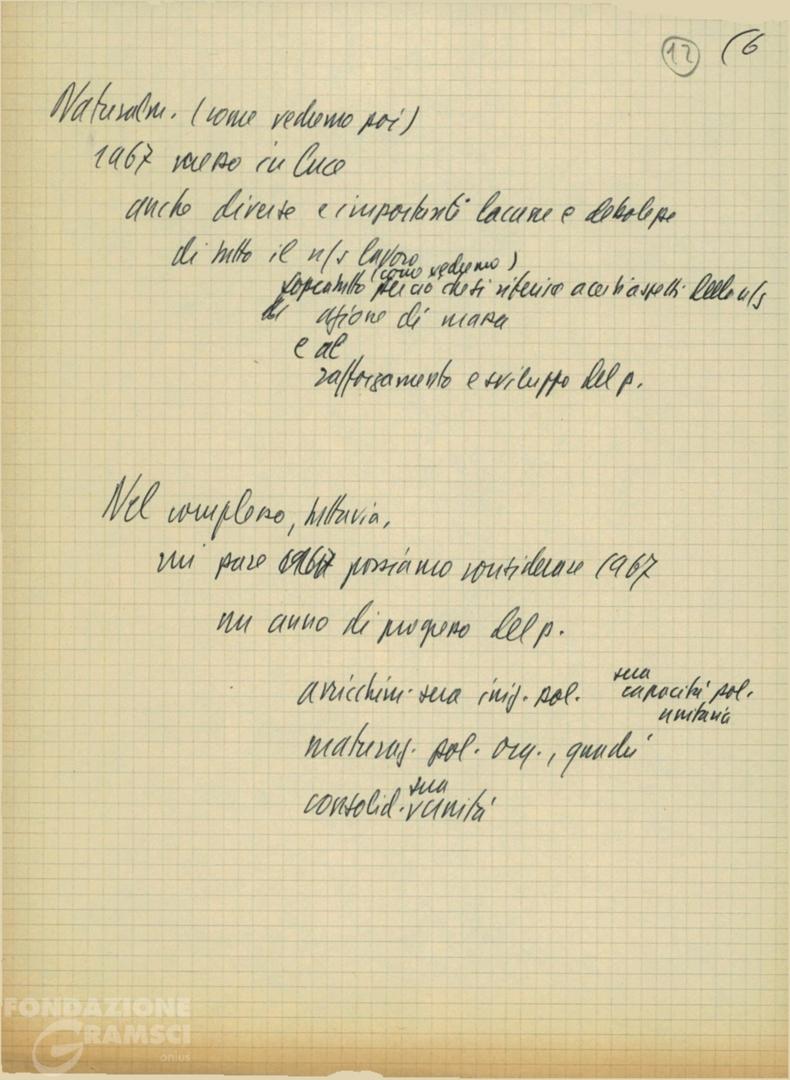 12 (6
Naturalm. (come vedremo poi)
1967 messo in luce
anche diverse e importanti lacune e debolezze
di tutto il n/s lavoro
(come vedremo)
sopratutto per ciò che si riferisce a certi aspetti della n/s
azione di massa
e al
rafforzamento e sviluppo del p.
Nel complesso, tuttavia,
mi pare possiamo considerare 1967
un anno di progresso del p.
arricchim. sua iniz. pol. sua capacità pol.
unitaria
maturaz. pol. org., quadri
consolid. sua unità
FONDAZIONE
GRAMSCI
onlus